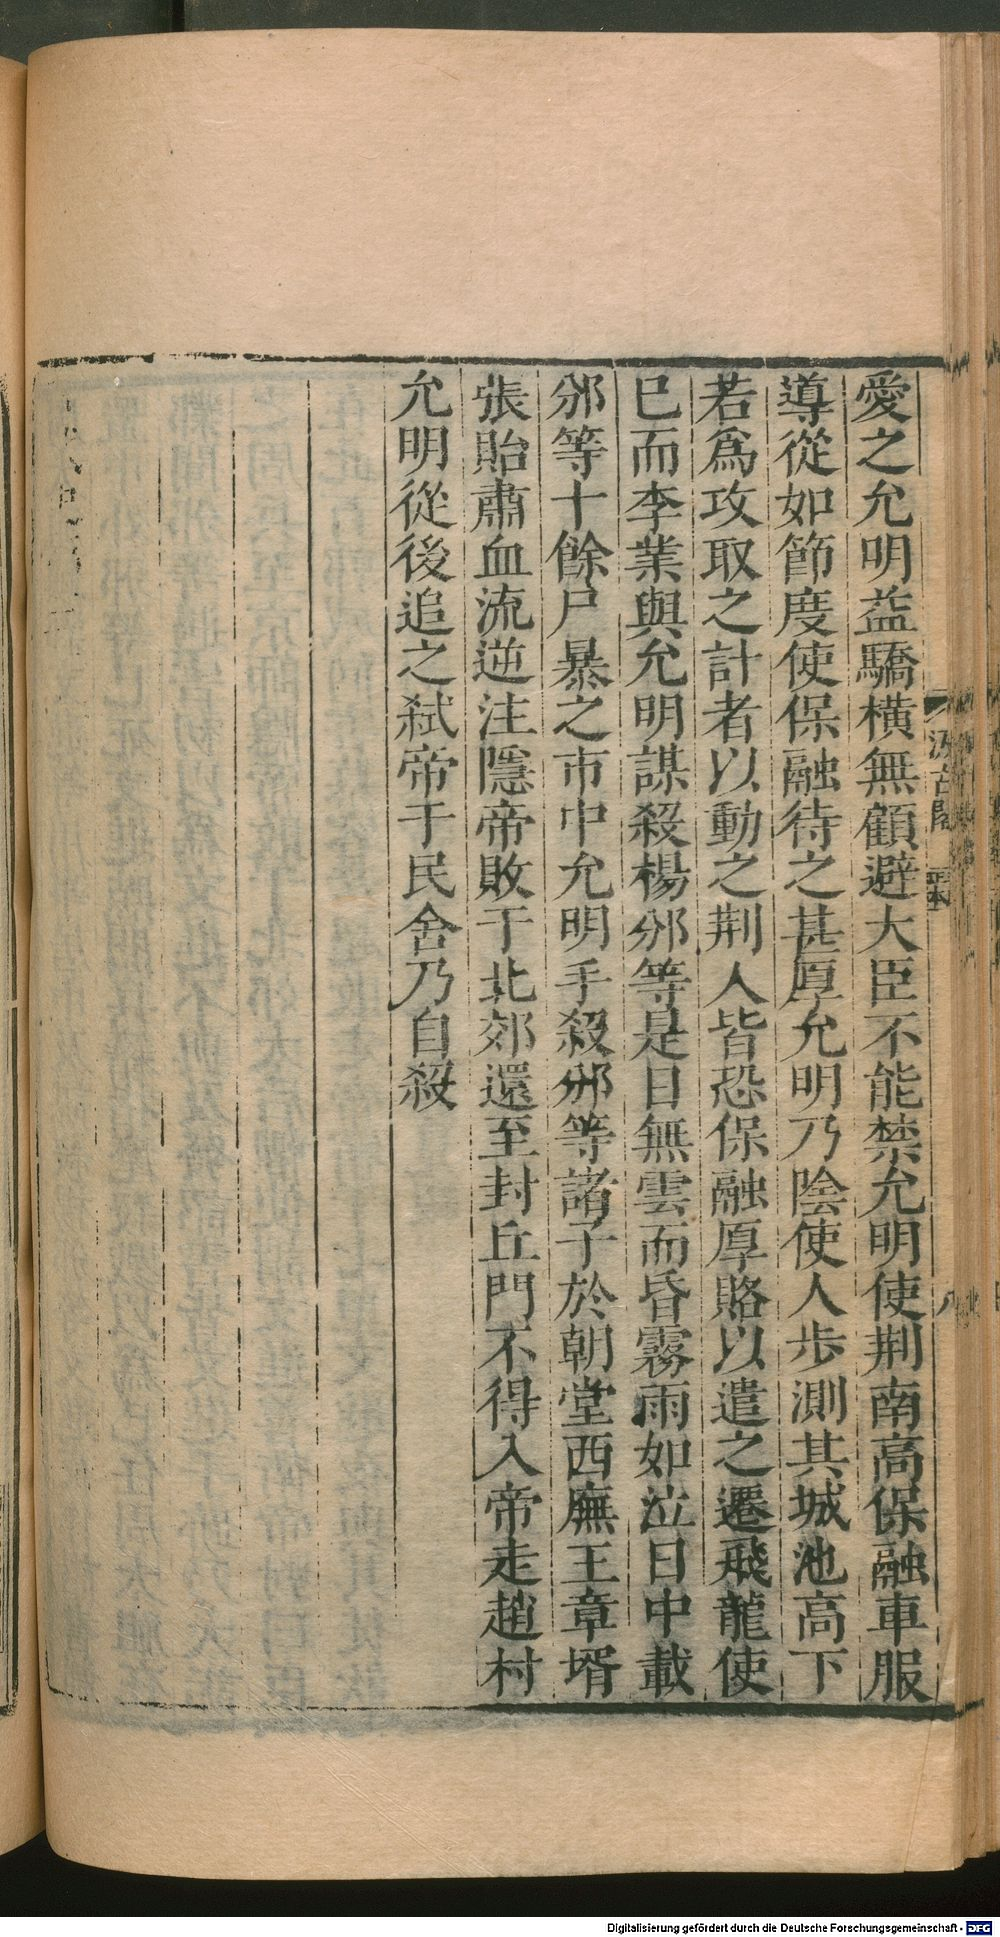 愛之允明益驕橫無顧避大臣不能禁允明使荆南高保融車服
導從如節度使保融待之甚厚允明乃陰使人步測其城池高下
若爲攻取之計者以動之荆人皆恐保融厚賂以遣之遷飛龍使
巳而李業與允明謀殺楊邠等是日無雲而昏霧雨如泣日中載
邠等十餘尸暴之市中允明手殺邠等諸子於朝堂西廡王章壻
張貽肅血流逆注隱帝敗于北郊還至封丘門不得入帝走趙村
允明從後追之弑帝于民舍乃自殺
汲古閣
八
Digitalisierung gefördert durch die Deutsche Forschungsgemeinschaft - DFG